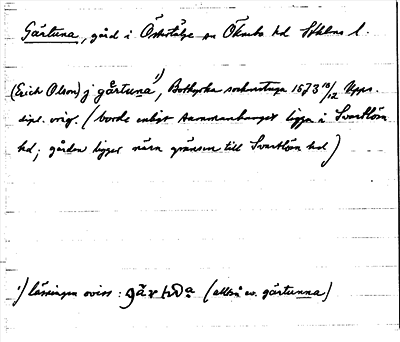 Gärtuna, gård i Östertälje sn Öknebo hd Sthlms l.
(Erich Olson) j gårtuna¹), Botkyrka sockenstuga 1573 18/12 Upps.
dipl. orig. (borde enligt sammanhanget ligga i Svartlösa
hd; gården ligger nära gränsen till Svartlösa hd)
¹) läsningen oviss: (alltså ev. gärtunna)